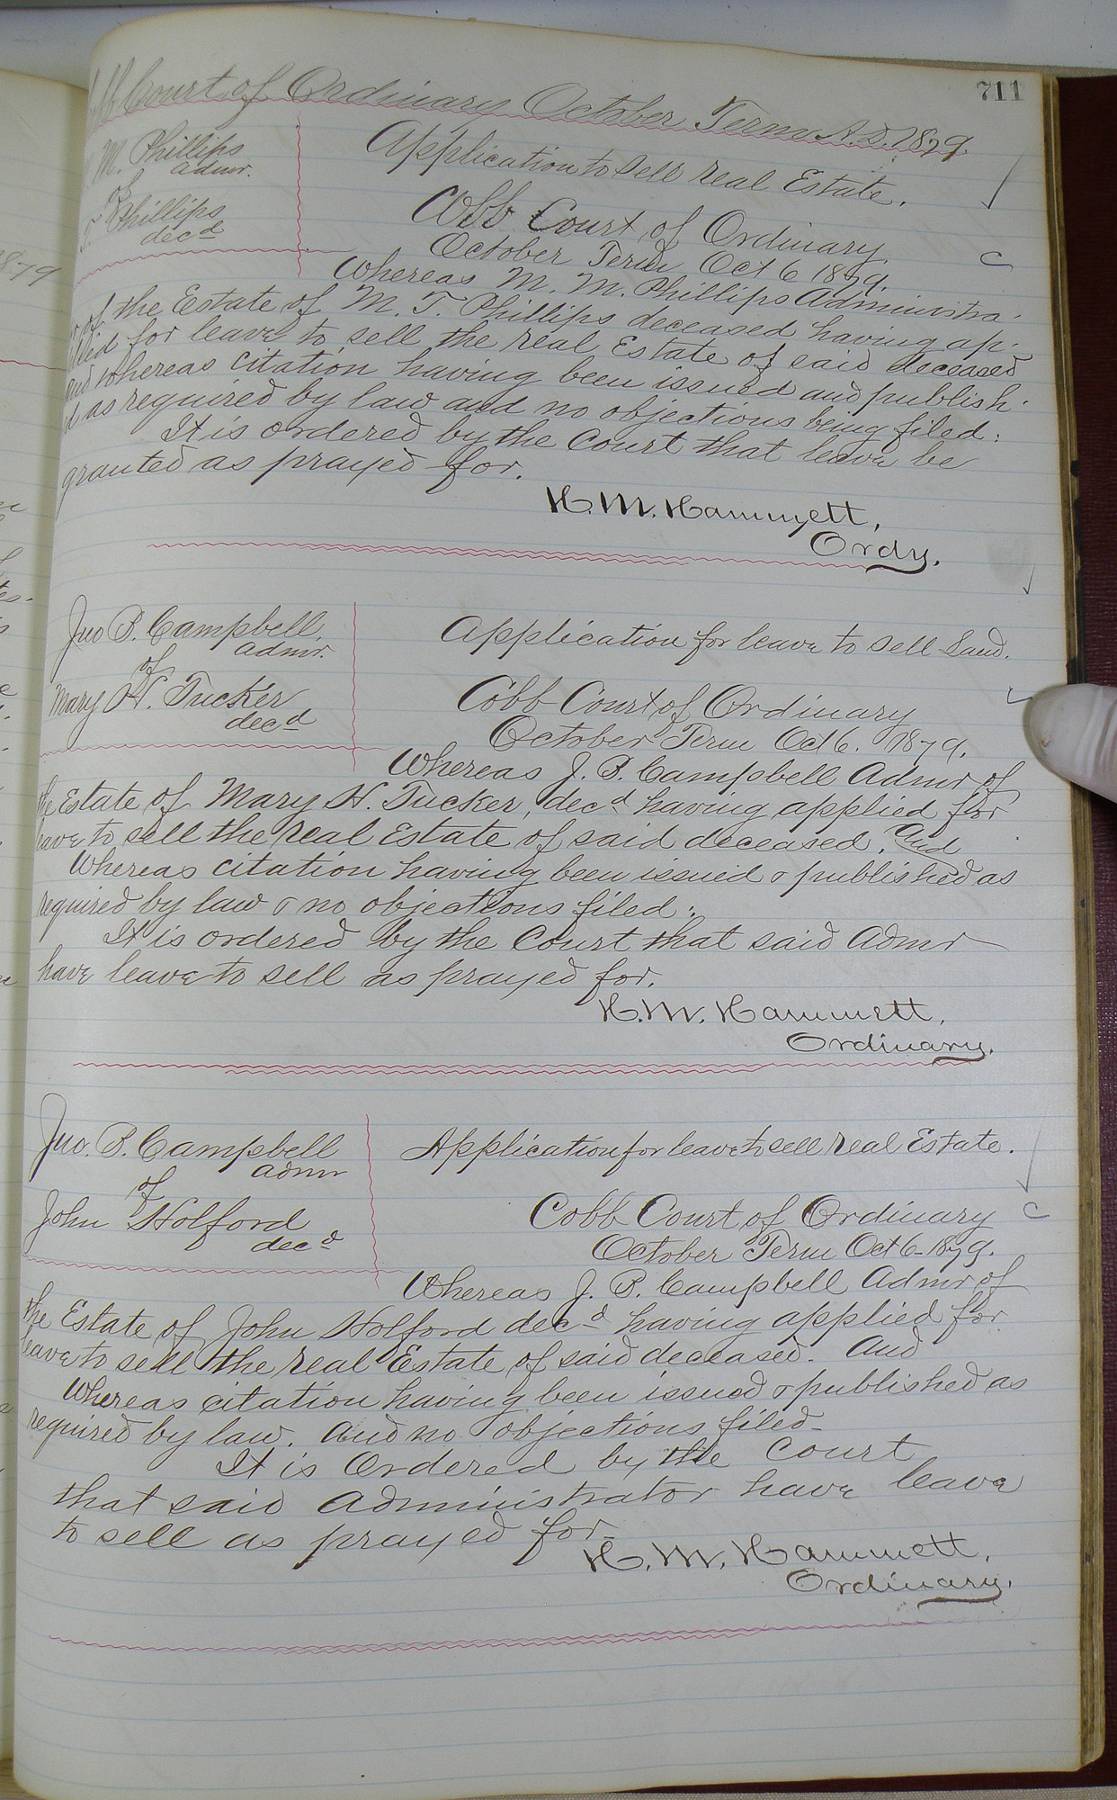 711
Court of Ordinary October Term A.D. 1879.
M. Phillips
admr.
Phillips
decd
Application to sell real Estate.
Cobb Court of Ordinary
October Term Oct 6 1879.
Whereas M. M. Phillips Administra-
of the Estate of M. T. Phillips deceased having ap-
plied for leave to sell the real Estate of said deceased
and whereas citation having been issued and publish-
ed as required by law and no objections being filed:
It is ordered by the Court that leave be
granted as prayed for.
H. M. Hammett,
Ordy.
Jno B. Campbell,
admr.
of
Mary H. Tucker
decd
Application for leave to sell Land.
Cobb Court of Ordinary
October Term Oct 6. 1879.
Whereas J. B. Campbell Admr of
the Estate of Mary H. Tucker, decd having applied for
leave to sell the real Estate of said deceased. And
Whereas citation having been issued & published as
required by law & no objections filed:
It is ordered by the Court that said Admr
have leave to sell as prayed for.
H. M. Hammett,
Ordinary.
Jno. B. Campbell
admr
of
John Holford
decd
Application for leave to sell real Estate.
Cobb Court of Ordinary
October Term Oct 6 - 1879.
Whereas J. B. Campbell Admr of
the Estate of John Holford decd having applied for
leave to sell the real Estate of said deceased. And
Whereas citation having been issued & published as
required by law. And no objections filed -
It is Ordered by the Court
that said Administrator have leave
to sell as prayed for -
H. M. Hammett,
Ordinary.